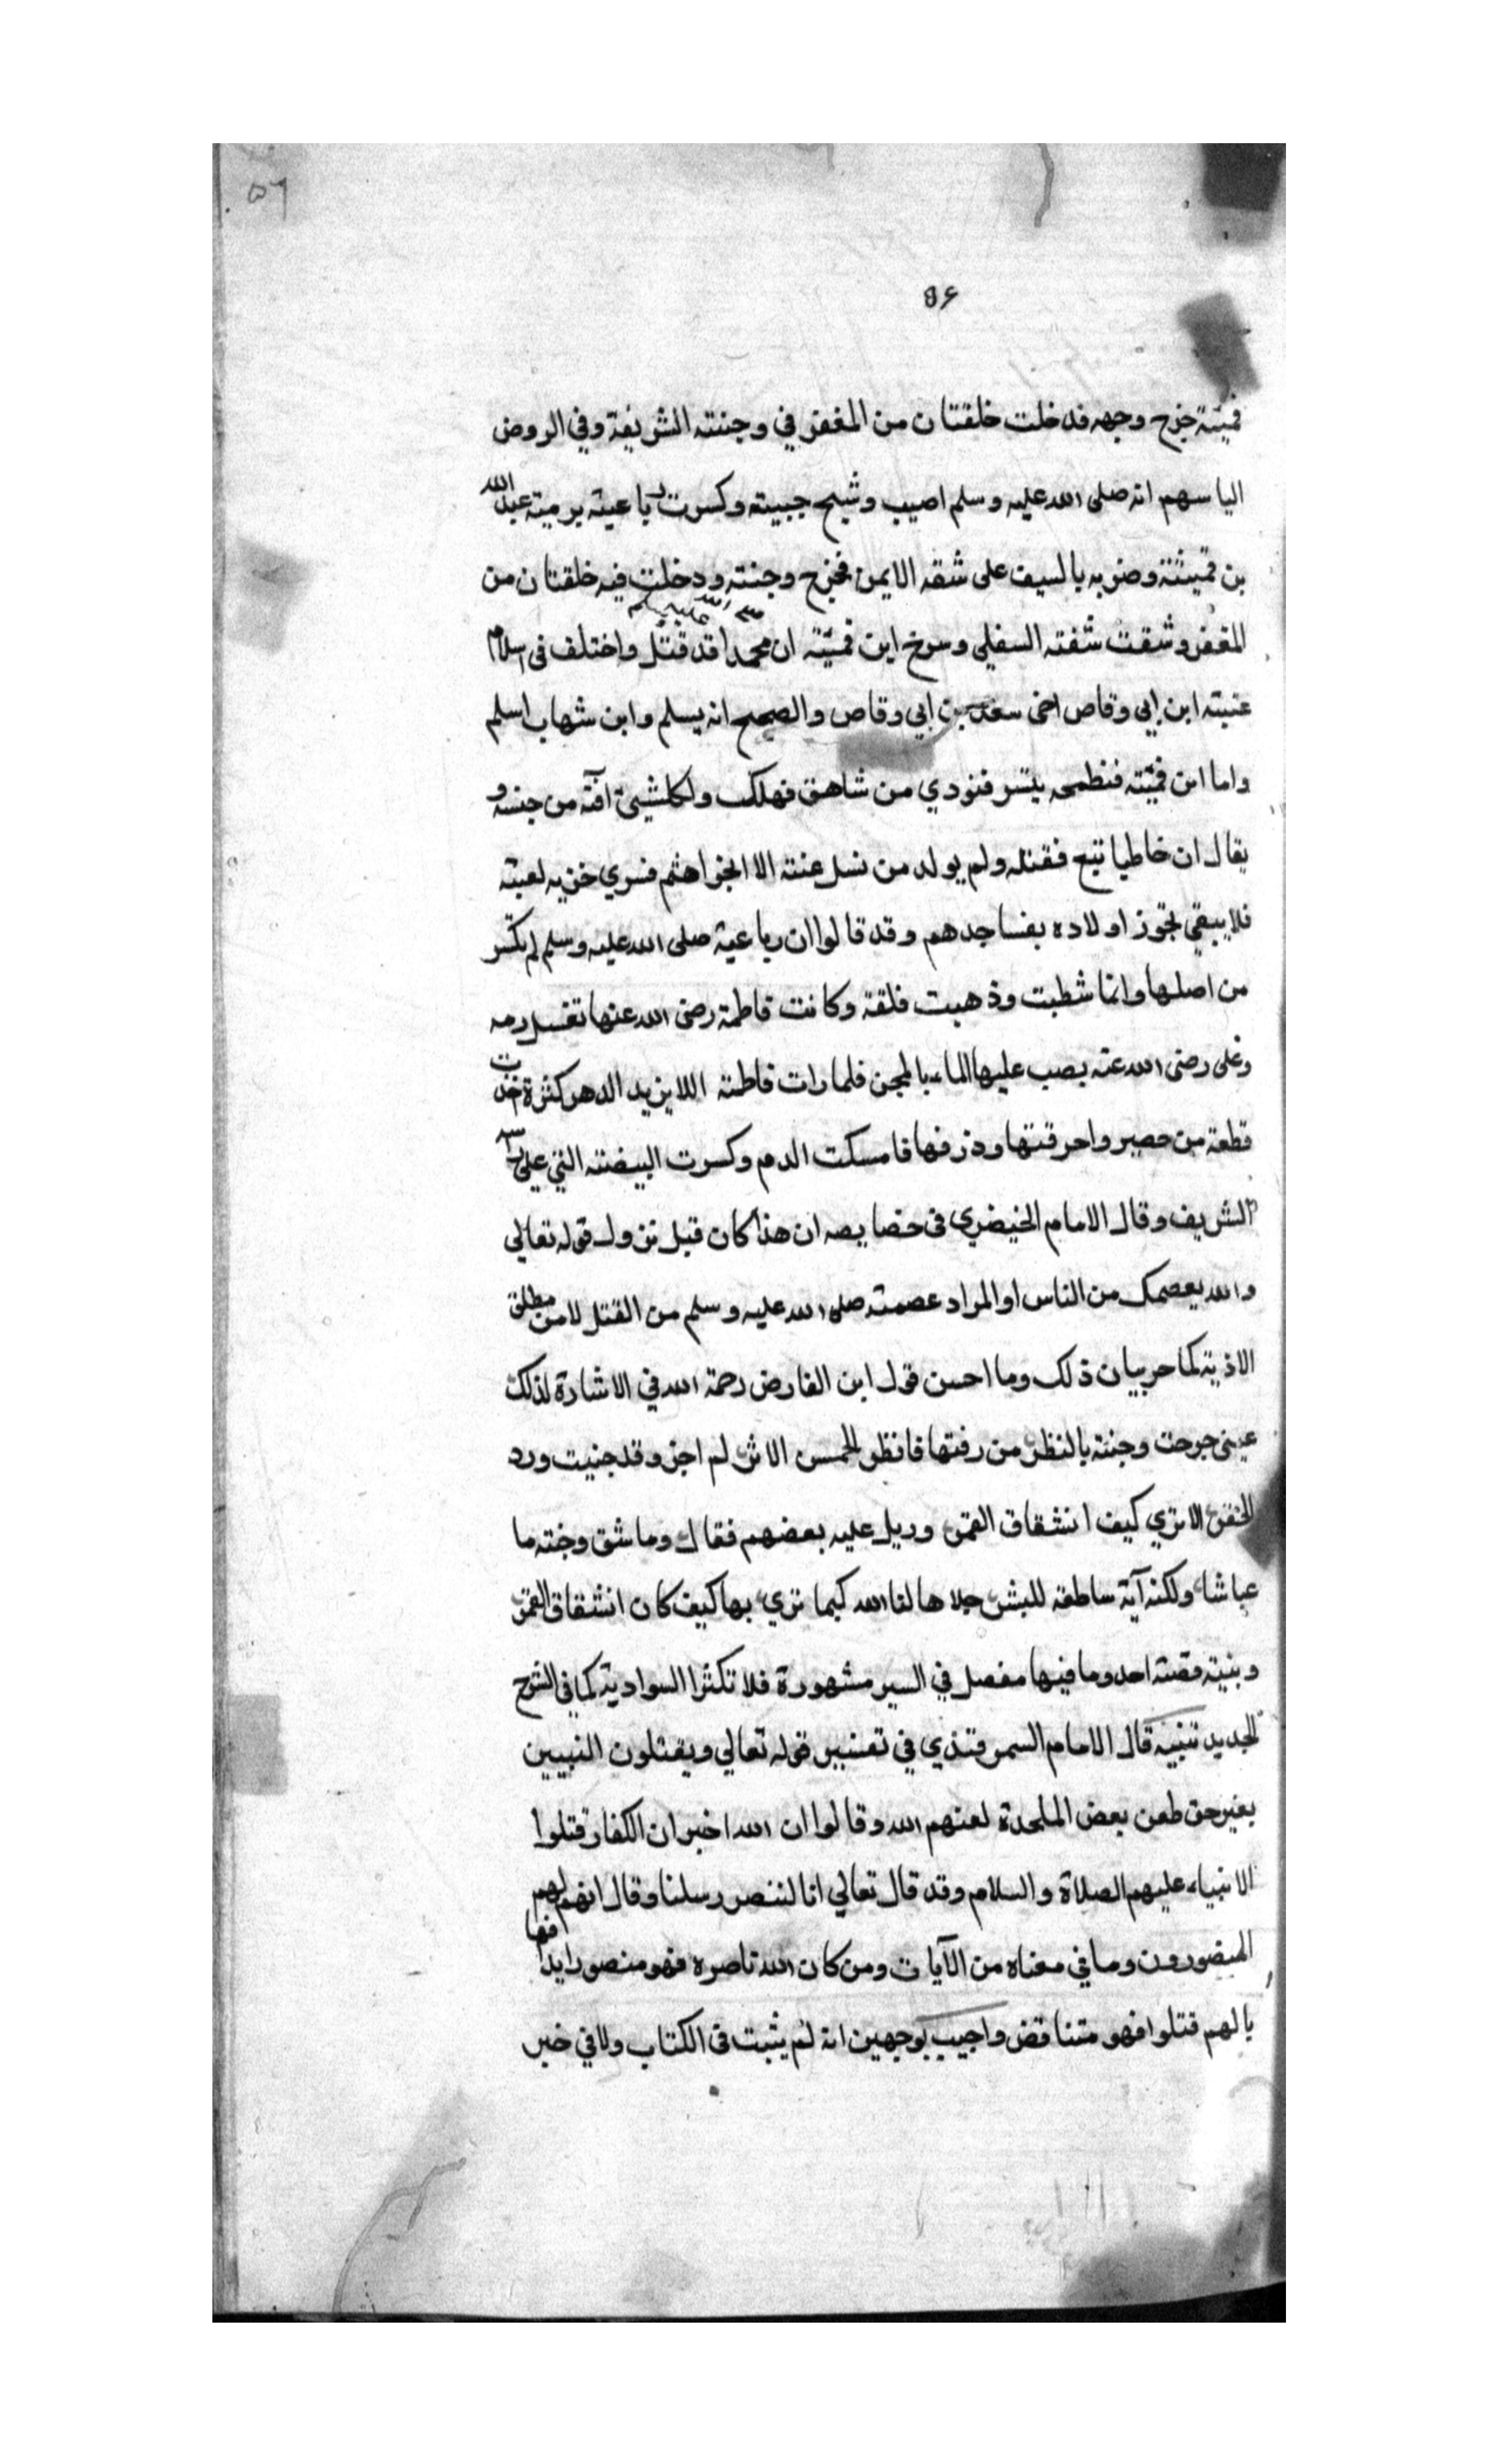 ٥٦
٥٦
قميئة جرح وجهه فدخلت حلقتان من المغفر في وجنته الشريفة وفي الروض
الياسهم انه صلى الله عليه وسلم اصيب وشبح جبيته وكسرت رباعيته برمية عبد الله
بن قميئته وضربه بالسيف على شقه الايمن فجرح وجنته ودخلت فيه خلقتان من
المغفر وشقت شفته السفلي وسرخ ابن قميئة ان محمدا صلى الله عليه وسلم قد قتل واختلف في اسلام
عتبته ابن ابي وقاص اخى سعد بن ابي وقاص والصحيح انه يسلم وابن شهاب اسلم
واما ابن قميئته فنطحه بيتسر فنودي من شاهق فهلك و من جنسه و
يقال ان خاطيا تبع فقتله ولم يولد من نسل عنته الا فسري خزيه لعبته
فلا يبقي اولاده بفسا جدهم وقد قالوا ان رباعية صلى الله عليه وسلم لم تكسر
من اصلها وانما شطبت وذهبت فلقة وكانت فاطمة رضى الله عنها تغسل دمه
وعلى رضى الله عنه يصب عليها الماء بالمجن فلما رات فاطمته اللا يزيد الدهر كثرة اخذت
قطعة من حصير واحرقتها وذرفها فامسكت الدم وكسرت البيضته التي على راسه
الشريف وقال الامام الخيضري في خصايصه ان هذا كان قبل نزول قوله تعالي
والله يعصمك من الناس او المراد عصمته صلى الله عليه وسلم من القتل لا من مطلق
الاذية كما حر بيان ذلك وما احسن قول ابن الفارض رحمة الله في الاشارة لذلك
عيني جرحت وجنته بالنظر من رفتها فانظر لحمسن الاثر لم اجن وقد جنيت ورد
الخفر الا تري كيف انشقاق القمر وريل عليه بعضهم فقال وما شق وجنته ما
عباشا ولكنه آية ساطعة للبشر جلاها لنا الله كيما نري بها كيف كان انشقاق القمر
وبنية قصته احد وما فيها مفصل في السير مشهورة فلا تكثرا السوادية كما في الشرح
الجديد تنبيه قال الامام السمرقندي في تفسير قوله تعالي ويقتلون النبيين
بغير حق طعن بعض الملحدة لعنهم الله وقالوا ان الله اخبر ان الكفار قتلوا
الانبياء عليهم الصلاة والسلام وقد قال تعالي انا لننصر رسلنا وقال انهم لهم
المنصورون وما في معناه من الآيات ومن كان الله ناصره فهو منصور ابدا فها
بالهم قتلوا فهو متناقض واجيب بوجهين انه لم يثبت في الكتاب ولا في خبر